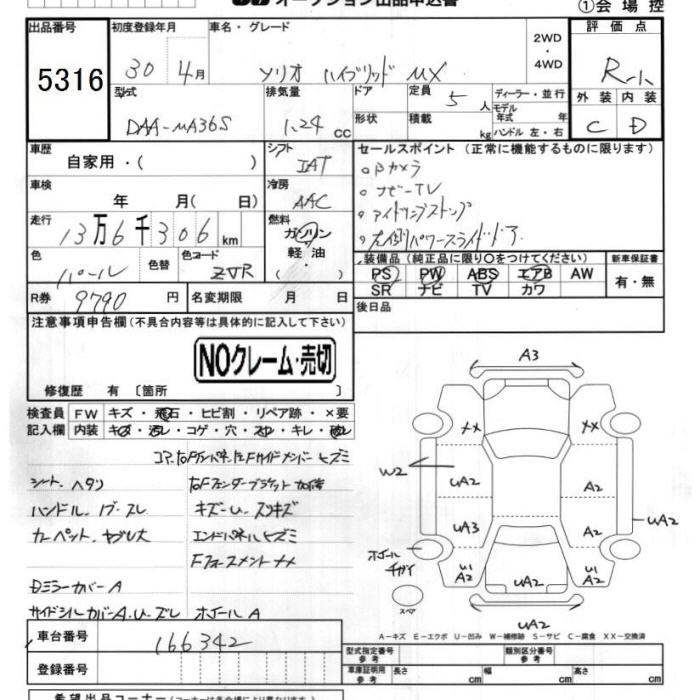 オークション出品申込書
①会場控
出品番号 初度登録年月 車名・グレード 2WD・4WD 評価点
5316 30年 4月 ソリオ ハイブリッド MX
型式 排気量 ドア 定員 5人 ディーラー・並行 外装 内装
DAA-MA36S 1.24 cc 形状 積載 kg モデル年式 年 C D
ハンドル 左・右
車歴 シフト セールスポイント (正常に機能するものに限ります)
自家用・( ) IAT ○Bカメラ
車検 冷房 ○ナビーTV
年 月( 日) AAC ○アイドリングストップ
走行 燃料 ○左側パワースライドドア
13万6千306km ガソリン・軽油・
色 色替 色コード 装備品 (純正品に限り○をつけてください) 新車保証書
パール ZVR PS PW ABS エアB AW 有・無
SR ナビ TV カワ
R券 9790円 名変期限 月 日 後日品
注意事項申告欄(不具合内容等は具体的に記入して下さい)
NOクレーム・売切
修復歴 有 〔箇所 〕
検査員 FW キズ・飛石・ヒビ割・リペア跡・×要
記入欄 内装 キズ・汚レ・コゲ・穴・スレ・キレ・破レ
シート、ヘタリ
ハンドル、ノブ、スレ
カーペット、ヤブレ大
キズーU、スリキズ
エンドパネルヒズミ
DミラーカバーA
サイドシルカバーA、U、ズレ ホゴールA
A3
XX XX
W2 UA2 A2
UA3 A2 UA2
U1 A2 UA2 U1 A2
スペア UA2
A-キズ E-エクボ U-凹み W-補修跡 S-サビ C-腐食 XX-交換済
車台番号 166342
型式指定番号 参考 類別区分番号 参考
登録番号 車庫証明用 参考 長さ 幅 高さ
希望出品コーナー